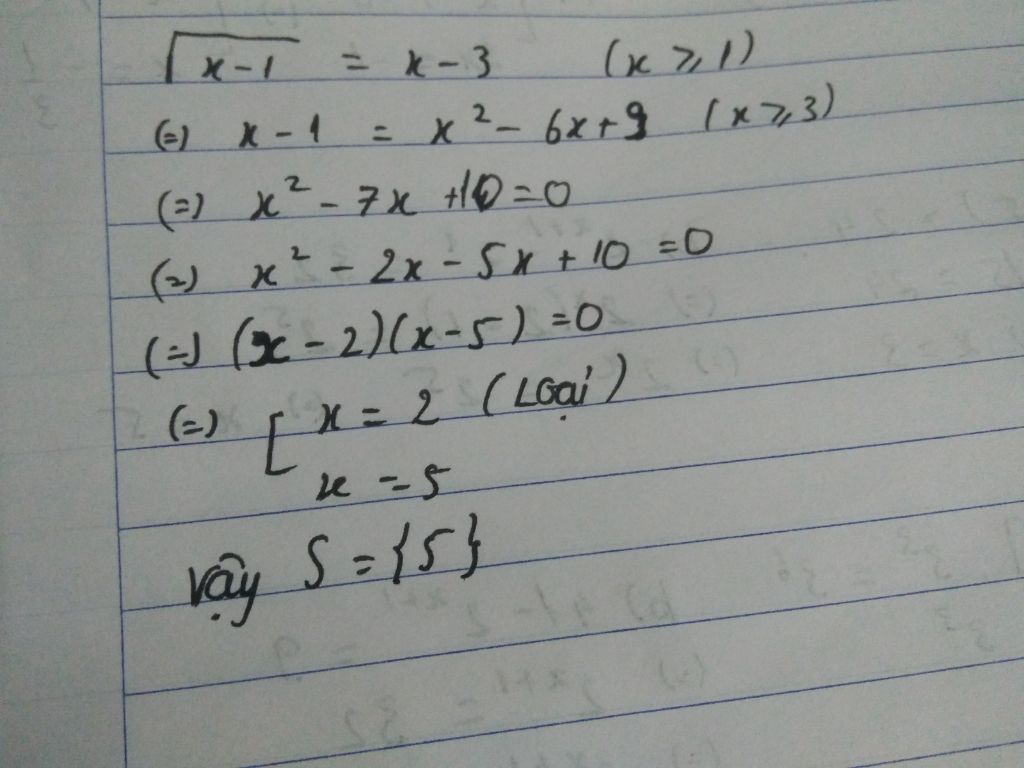 √(x-1) = x-3 (x ≥ 1)
(=) x-1 = x² - 6x+9 (x ≥ 3)
(=) x² - 7x +10=0
(=) x² - 2x - 5x + 10 =0
(=) (x-2)(x-5) =0
(=) [ x = 2 (Loại)
x = 5
Vậy S = {5}